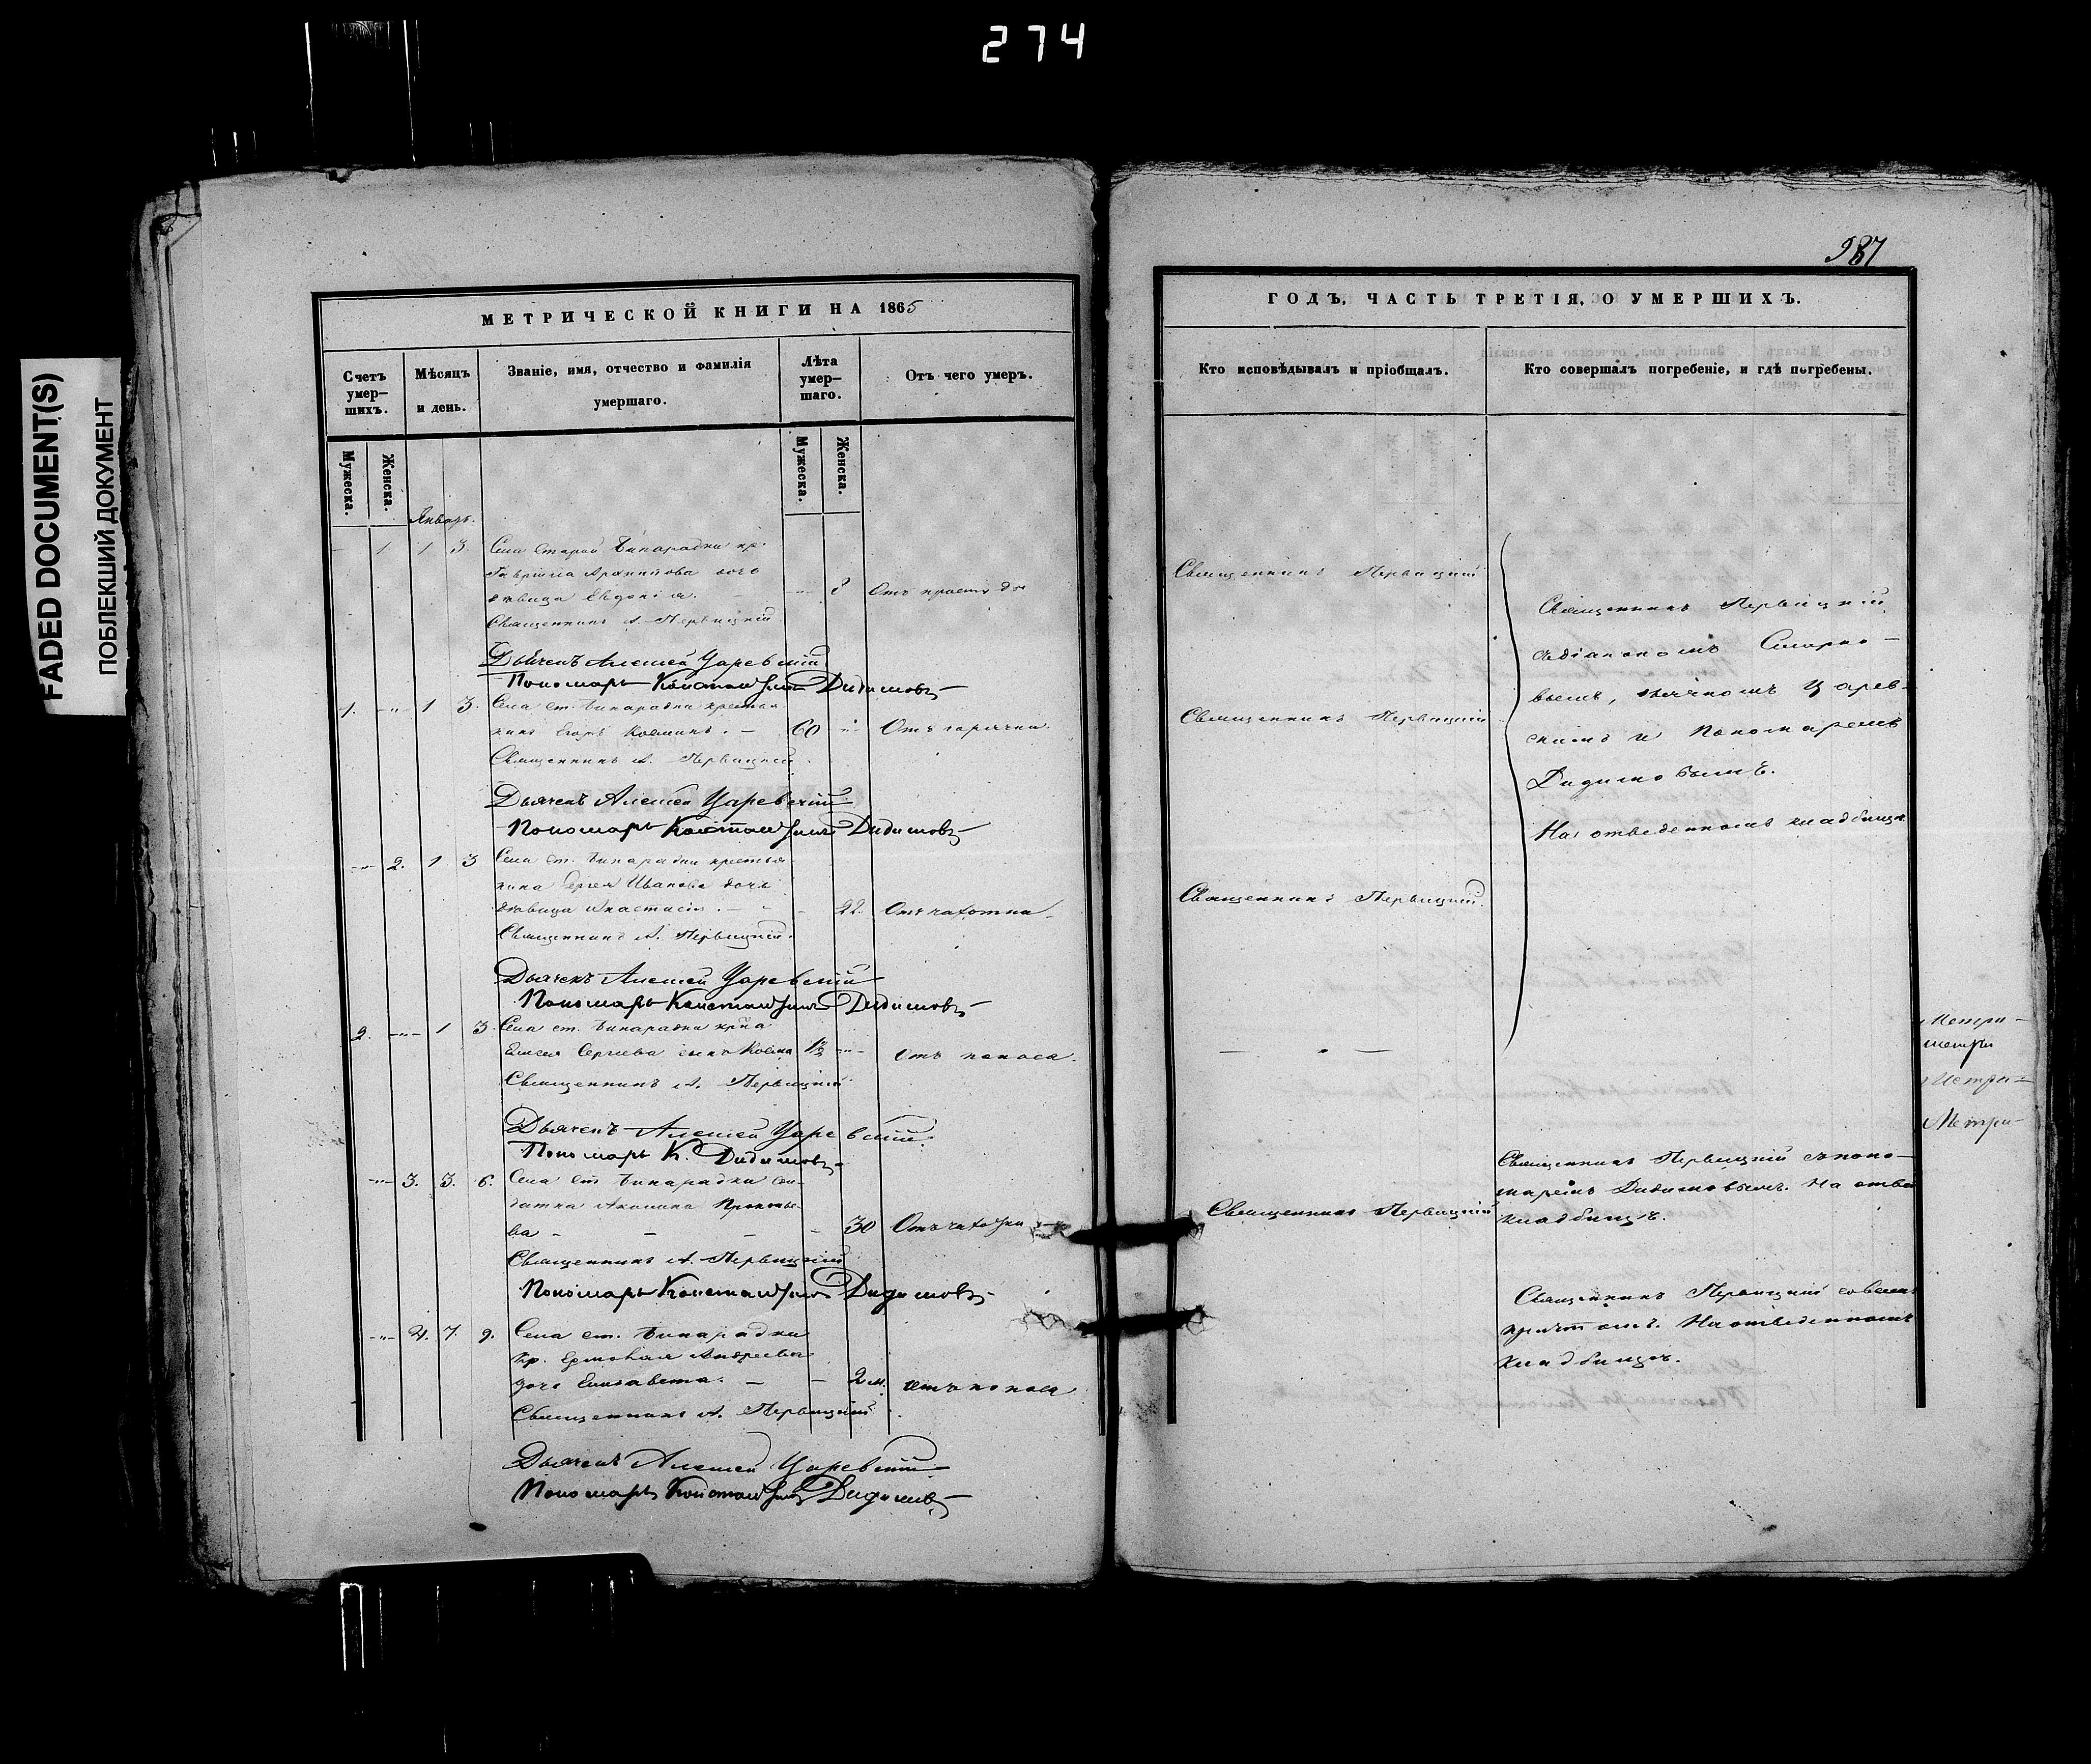 274
FADED DOCUMENT(S)
ПОБЛЕКШИЙ ДОКУМЕНТ
МЕТРИЧЕСКОЙ КНИГИ НА 1865
Счетъ умер-шихъ.
Мѣсяцъ и день.
Званіе, имя, отчество и фамилія умершаго.
Лѣта умер-шаго.
Отъ чего умеръ.
Мужеска.
Женска.
Мужеска.
Женска.
Январь.
1 1 3. Села Старой Бинарадки кр.
Гавріила Архипова дочь
дѣвица Евдокія. 8
Священникъ А. Первицкій
Дьячекъ Алексей Царевскій
Пономарь Константинъ Дидимовъ
1. 1 3. Села ст. Бинарадки крестья-
нинъ Егоръ Козминъ. 60 Отъ горячки.
Священникъ А. Первицкій.
Дьячекъ Алексей Царевскій
Пономарь Константинъ Дидимовъ
2. 1 3 Села ст. Бинарадки крестья-
нина Сергея Иванова дочь
дѣвица Анастасія. 22. Отъ чахотки.
Священникъ А. Первицкій.
Дьячекъ Алексей Царевскій
Пономарь Константинъ Дидимовъ
2. 1 3. Села ст. Бинарадки кр-на
Сергиева сынъ Козма 1½ Отъ поноса.
Священникъ А. Первицкій.
Дьячекъ Алексей Царевскій
Пономарь К. Дидимовъ
3. 3. 6. Села ст. Бинарадки сол-
датка Акилина Прокопье-
ва 30 Отъ чахотки
Священникъ А. Первицкій
Пономарь Константинъ Дидимовъ
4. 7. 9. Села ст. Бинарадки
кр. Ермолая Андреева
дочь Елисавета. 2 м. Отъ поноса
Священникъ А. Первицкій
Дьячекъ Алексей Царевскій
Пономарь Константинъ Дидимовъ
987
ГОДЪ, ЧАСТЬ ТРЕТІЯ, О УМЕРШИХЪ.
Кто исповѣдывалъ и пріобщалъ.
Кто совершалъ погребеніе, и гдѣ погребены.
Священникъ Первицкій
Священникъ Первицкій
Священникъ Первицкій.
Священникъ Первицкій
Священникъ Первицкій
съ діакономъ Смирно-
вымъ, дьячкомъ Царев-
скимъ и Пономаремъ
Дидимовымъ.
На отведенномъ кладбище
Священникъ Первицкій съ поно-
маремъ Дидимовымъ. На отве
кладбищѣ.
Священникъ Первицкій со всемъ
причтомъ. На отведенномъ
кладбищѣ.
Метри-
Метри-
Метри-